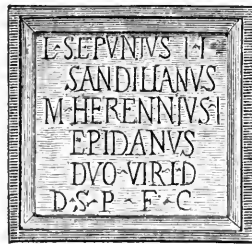 L·SEPVNIVS·L·F
SANDILIANVS
M·HERENNIVS·I
EPIDANVS
DVO·VIR·I·D
D·S·P·F·C